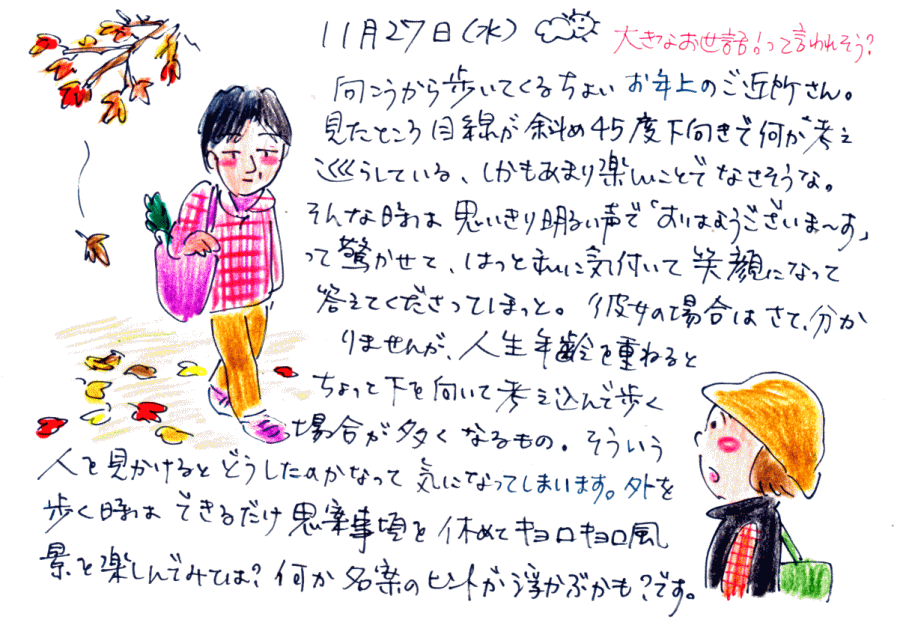 11月27日(水)
大きなお世話!って言われそう?
向こうから歩いてくるちょいお年上のご近所さん。
見たところ目線が斜め45度下向きで何か考え
巡らしている、しかもあまり楽しいことでなさそうな。
そんな時は思いきり明るい声で「おはようございま〜す」
って驚かせて、はっと我に気付いて笑顔になって
答えてくださってほっと。彼女の場合はさて、分か
りませんが、人生年齢を重ねると
ちょっと下を向いて考え込んで歩く
場合が多くなるもの。そういう
人を見かけるとどうしたのかなって気になってしまいます。外を
歩く時はできるだけ思案事頃を休めてキョロキョロ風
景を楽しんでみては?何か名案のヒントが浮かぶかも?です。